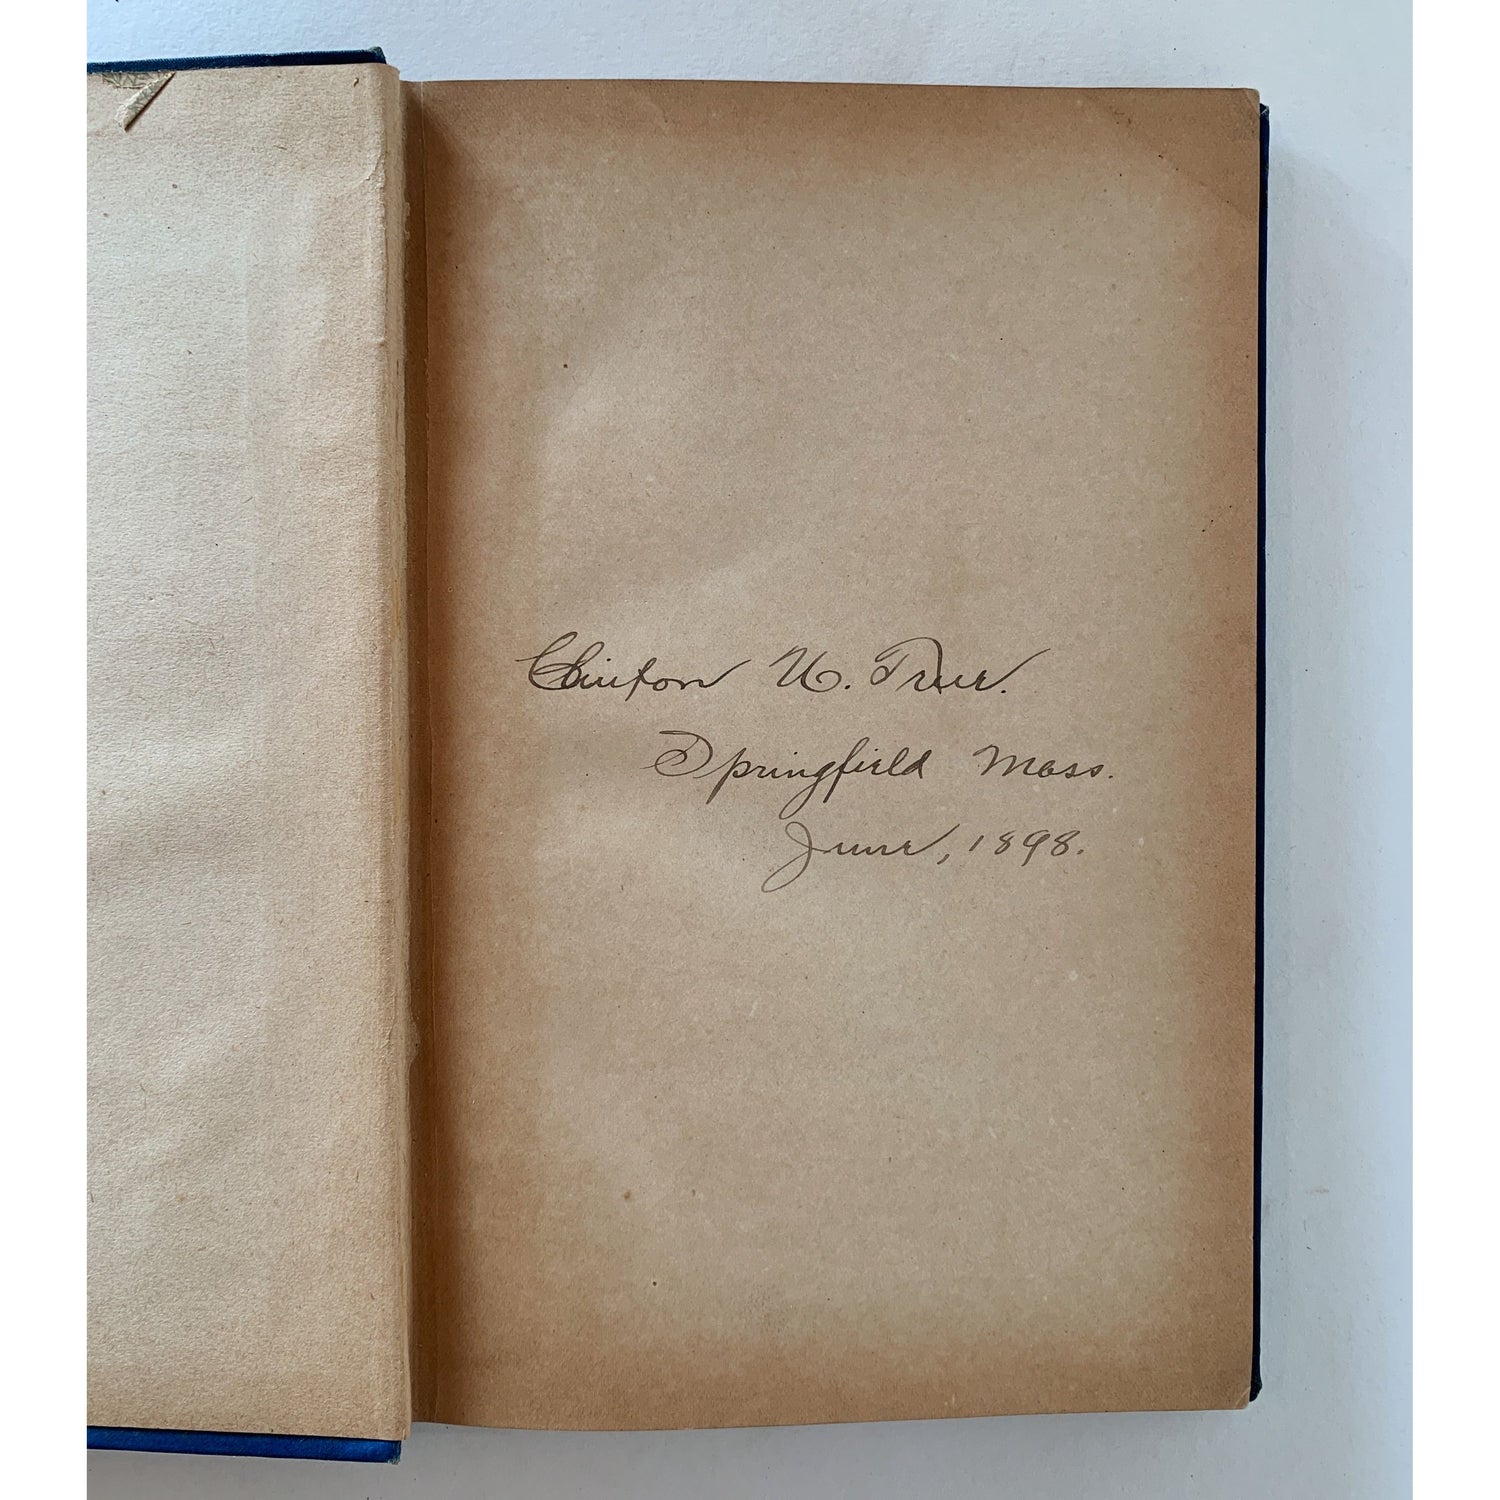 Clinton H. True.
Springfield Mass.
June, 1898.